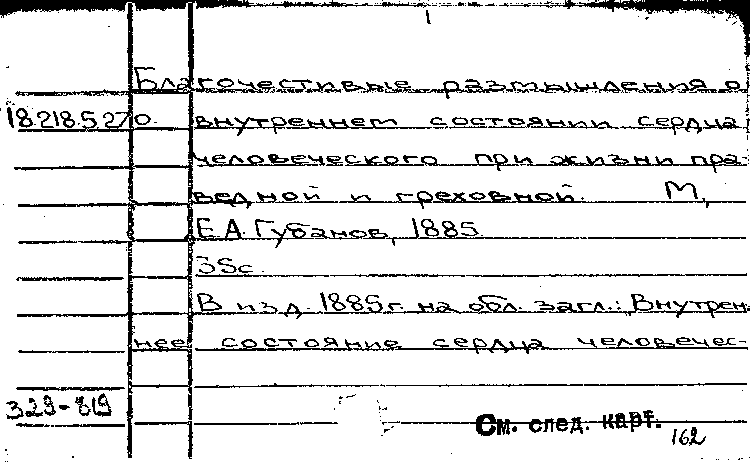 Благочестивые размышления о
18.218.5.270. внутреннем состоянии сердца
человеческого при жизни пра-
ведной и греховной. М,
Е.А. Губанов, 1885.
35с.
В изд. 1885г. на обл. загл.: Внутрен-
нее состояние сердца человечес-
329-819
См. след. карт.
162